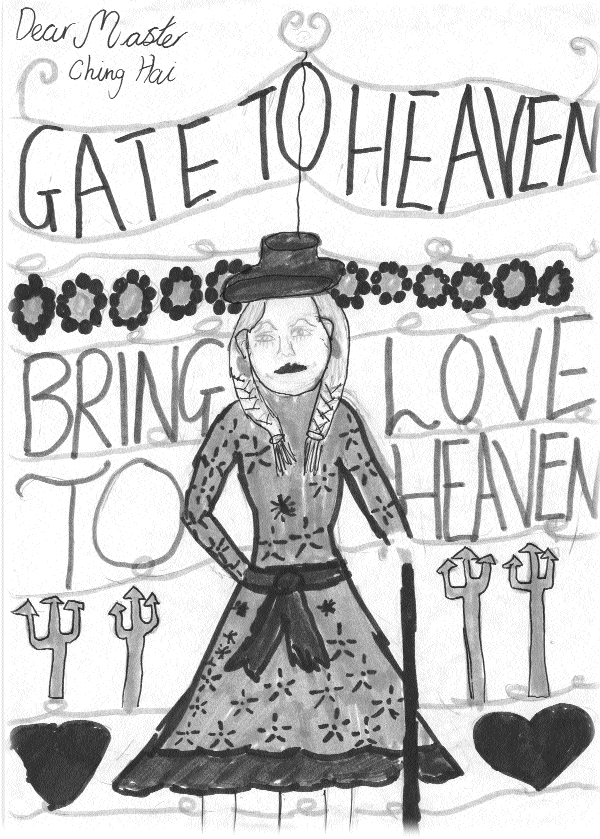 Dear Master
Ching Hai
GATE TO HEAVEN
BRING LOVE
TO HEAVEN